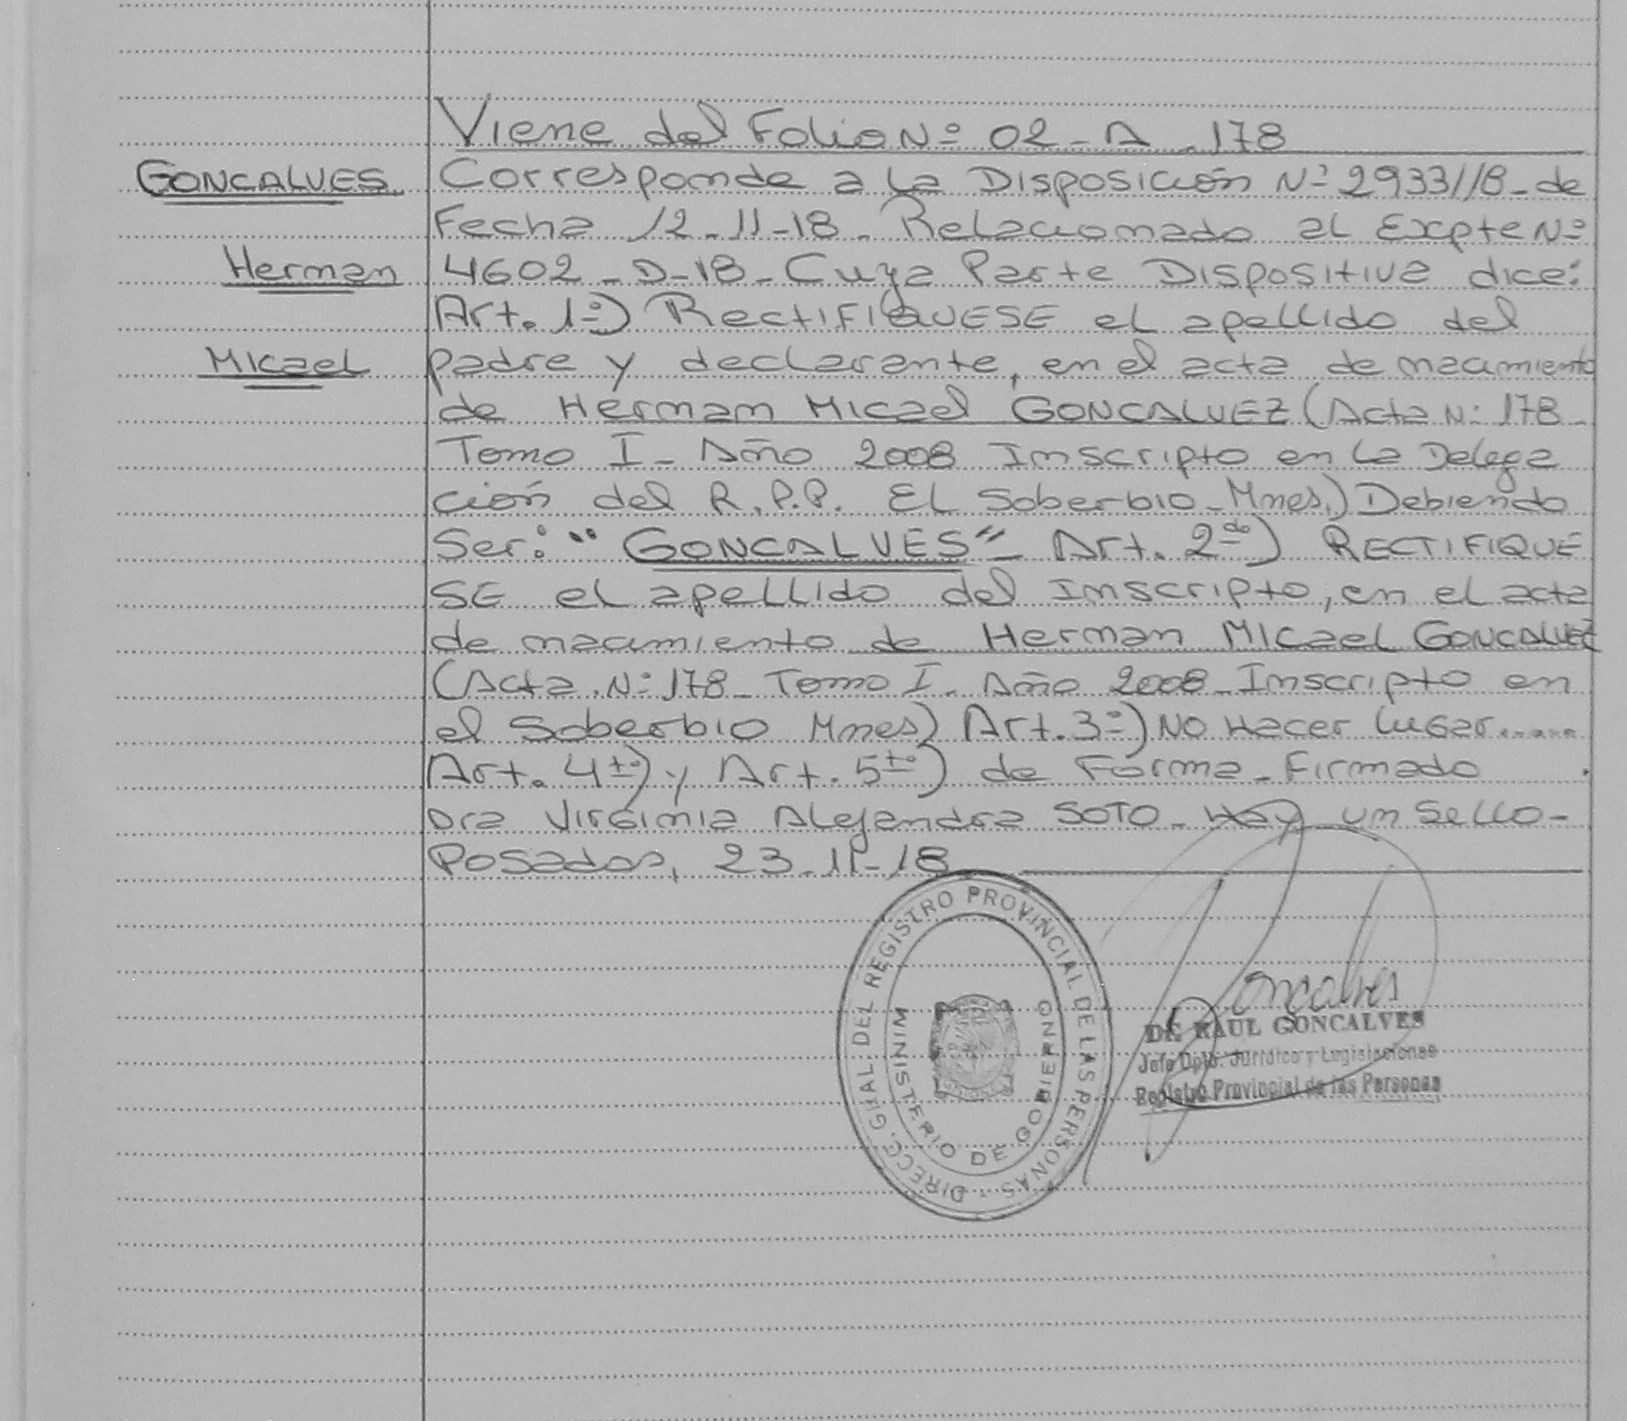 Viene del Folio Nº 02-A-178
GONCALVES
Corresponde a la Disposición Nº 2933//18-de
Fecha 12-11-18- Relacionado al Expte Nº
Herman
4602-D-18-Cuya Parte Dispositiva dice:
Art. 1º) RECTIFIQUESE el apellido del
Micael
padre y declarante, en el acta de nacimiento
de Herman Micael GONCALVEZ (Acta Nº 178-
Tomo I- Año 2008 Inscripto en la Delega
ción del R.P.P. El Soberbio-Mnes.) Debiendo
Ser: "GONCALVES"- Art. 2do) RECTIFIQUE
SE el apellido del Inscripto, en el acta
de nacimiento de Herman Micael GONCALVEZ
(Acta Nº 178- Tomo I- Año 2008- Inscripto en
el Soberbio Mnes) Art. 3º) No Hacer lugar......
Art. 4to) y Art. 5to) de Forma-Firmado
Dra Virginia Alejandra SOTO- Hay un Sello-
Posadas, 23-11-18
DIRECC. GRAL DEL REGISTRO PROVINCIAL DE LAS PERSONAS
MINISTERIO DE GOBIERNO
Goncalves
Dr. RAUL GONCALVES
Jefe Dpto. Jurídico y Legislaciones
Registro Provincial de las Personas